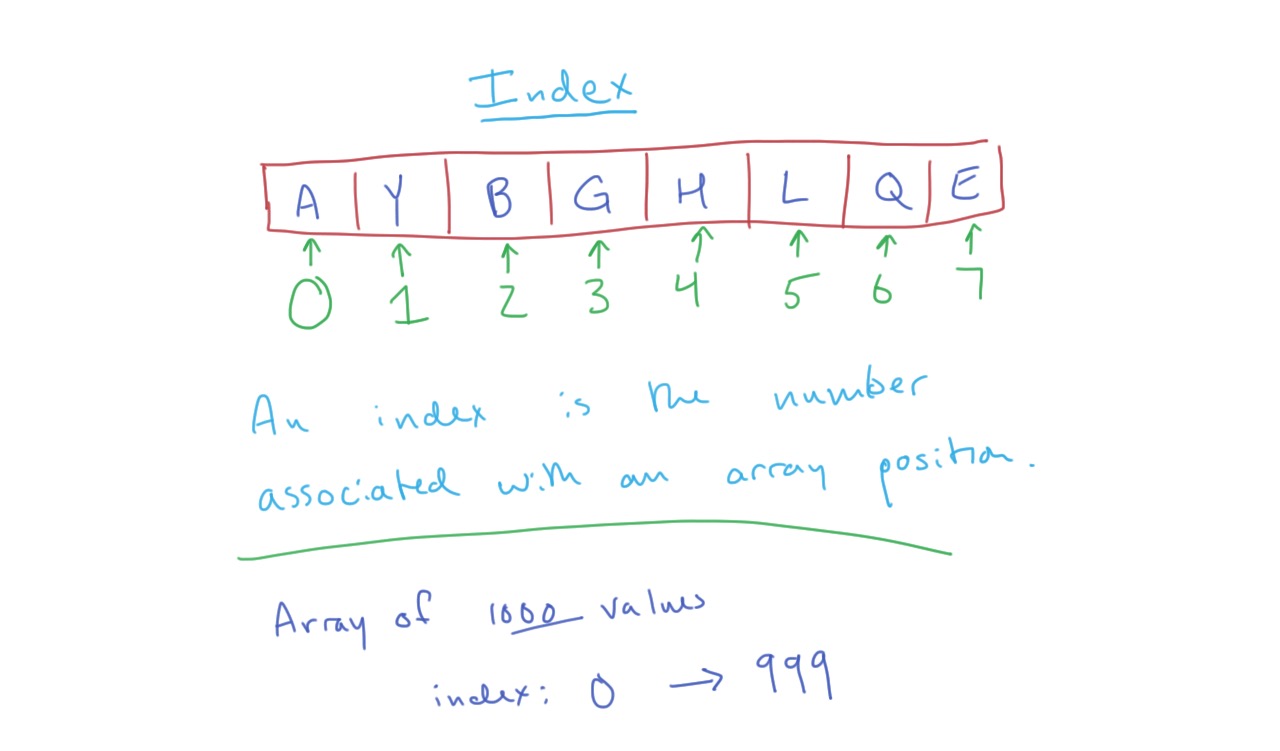 Index
A Y B G H L Q E
0 1 2 3 4 5 6 7
An index is the number
associated with an array position.
Array of 1000 values
index: 0 → 999